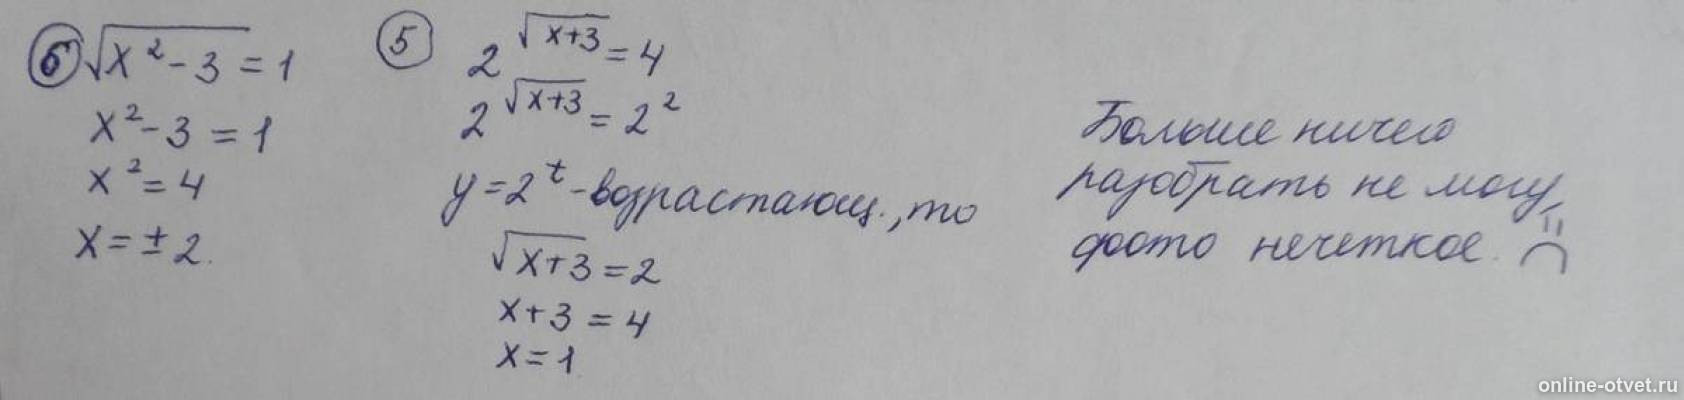 б √(x² - 3) = 1
x² - 3 = 1
x² = 4
x = ± 2.
5 2^√(x+3) = 4
2^√(x+3) = 2²
y = 2^t - возрастающ., то
√(x+3) = 2
x + 3 = 4
x = 1
Больше ничего
разобрать не могу,
фото нечеткое.
online-otvet.ru